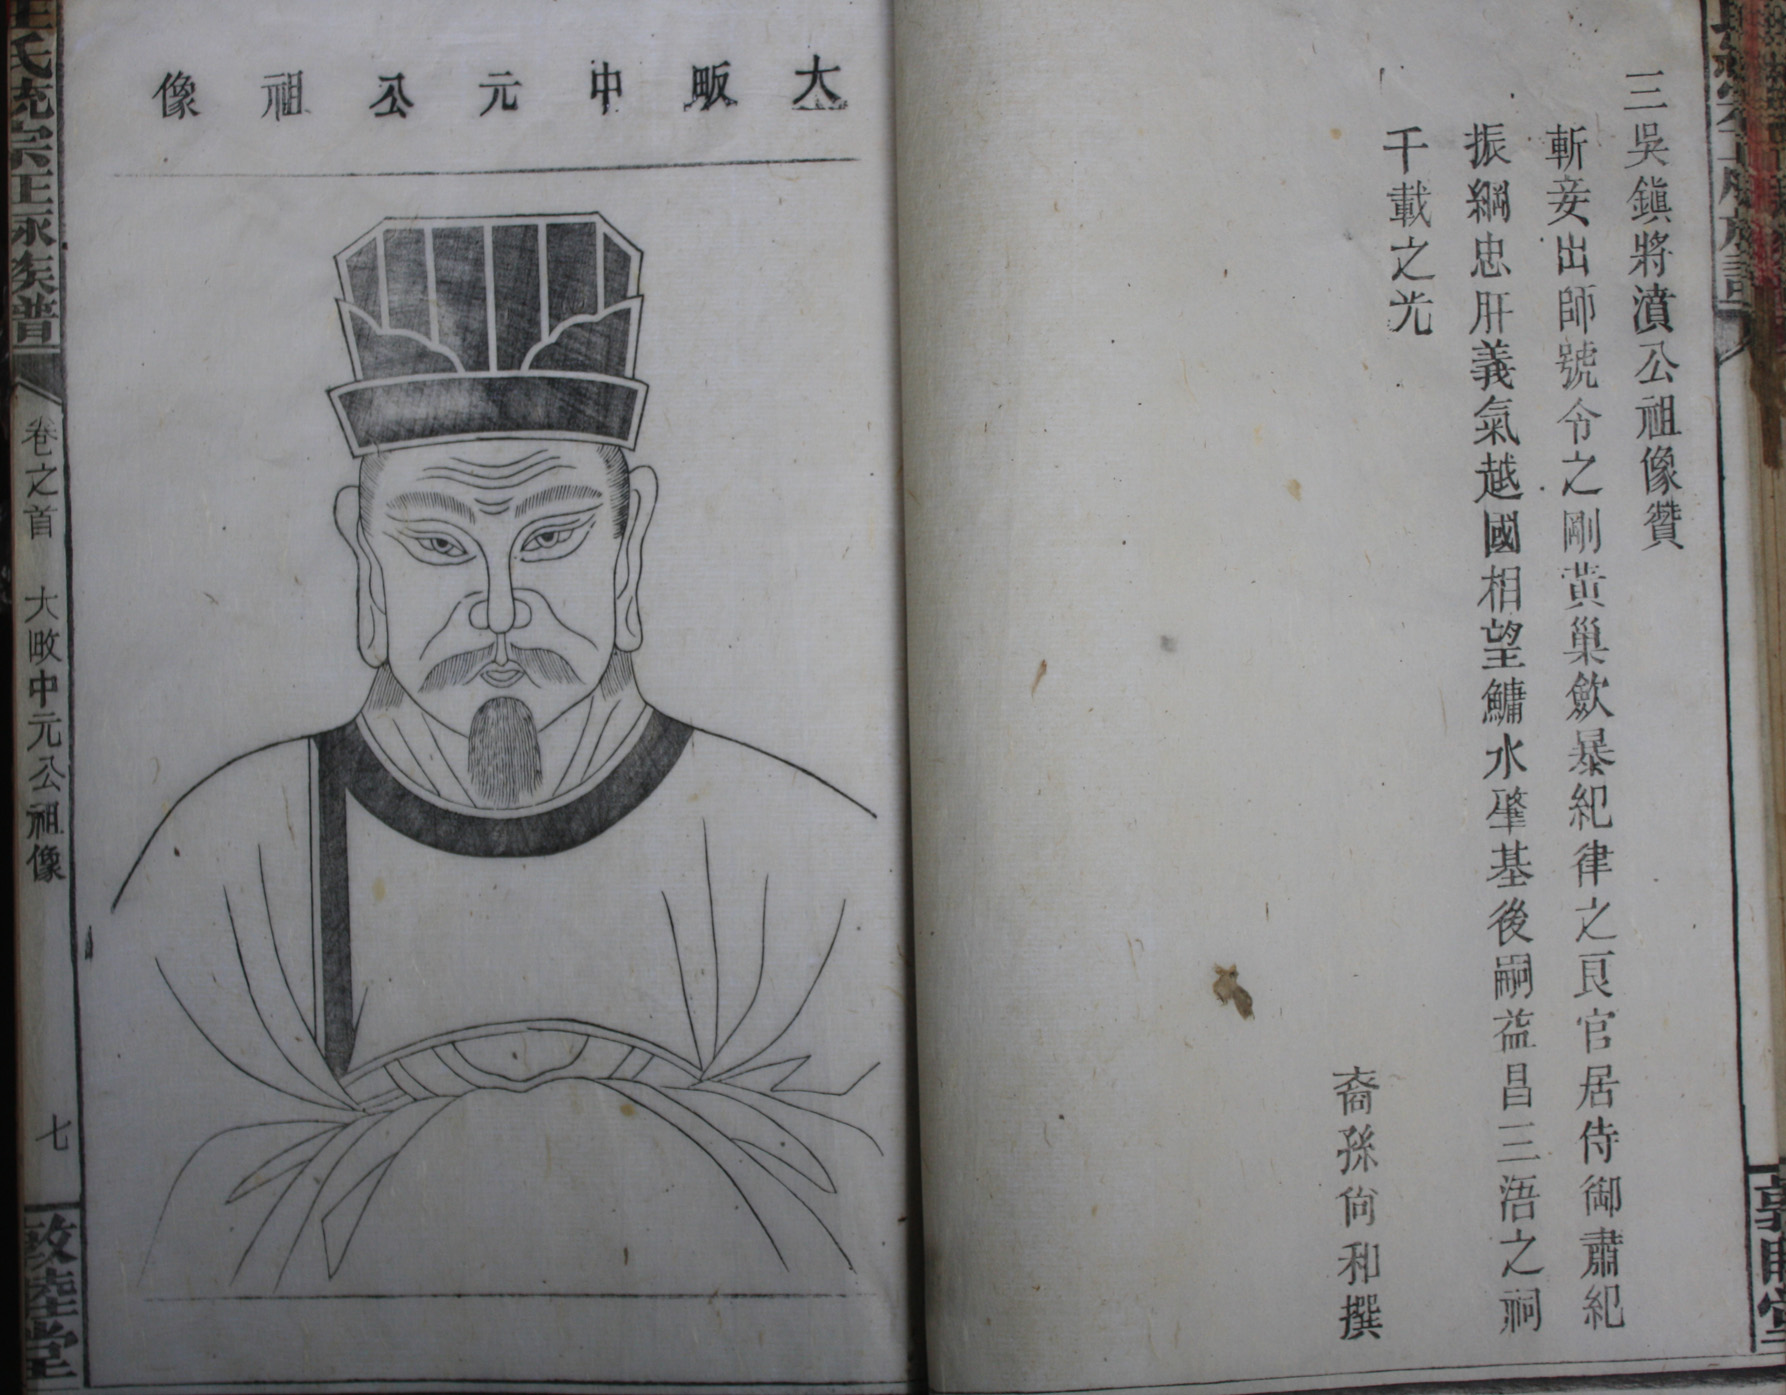 三吳鎮將濆公祖像贊
斬妾出師號令之剛黃巢歛暴紀律之良官居侍御肅紀
振綱忠肝義氣越國相望鱅水肇基後嗣益昌三浯之祠
千載之光
裔孫尙和撰
大畈中元公祖像
汪氏統宗正脉族譜
卷之首
大畈中元公祖像
七
敦睦堂
敦睦堂